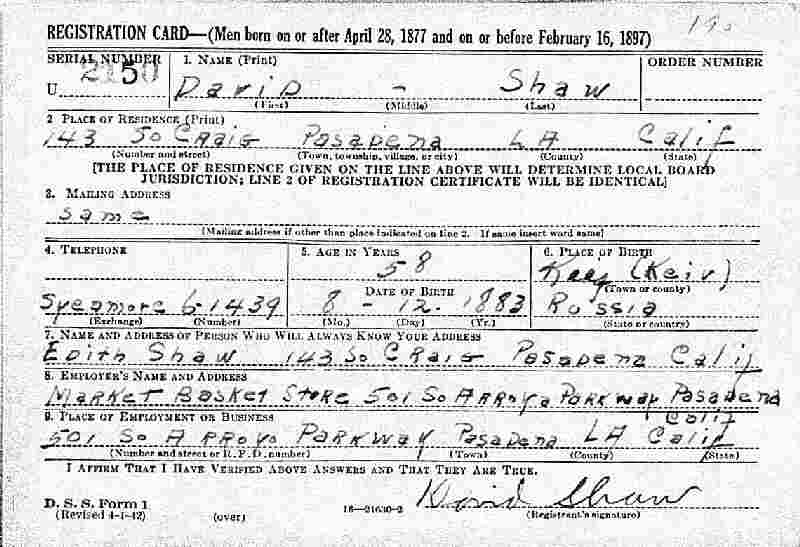 REGISTRATION CARD—(Men born on or after April 28, 1877 and on or before February 16, 1897)
SERIAL NUMBER 1. NAME (Print) ORDER NUMBER
U 2150 David - Shaw
(First) (Middle) (Last)
2 PLACE OF RESIDENCE (Print)
143 So Craig Pasadena LA Calif
(Number and street) (Town, township, village, or city) (County) (State)
[THE PLACE OF RESIDENCE GIVEN ON THE LINE ABOVE WILL DETERMINE LOCAL BOARD
JURISDICTION; LINE 2 OF REGISTRATION CERTIFICATE WILL BE IDENTICAL]
3. MAILING ADDRESS
Same
(Mailing address if other than place indicated on line 2. If same insert word same)
4. TELEPHONE 5. AGE IN YEARS 6. PLACE OF BIRTH
58 (Keiv)
DATE OF BIRTH (Town or county)
Sycamore 6-1439 8 - 12. 1883 Russia
(Exchange) (Number) (Mo.) (Day) (Yr.) (State or country)
7. NAME AND ADDRESS OF PERSON WHO WILL ALWAYS KNOW YOUR ADDRESS
Edith Shaw 143 So Craig Pasadena Calif
8. EMPLOYER'S NAME AND ADDRESS
Market Basket Store 501 So Arroyo Parkway Pasadena
Calif
9. PLACE OF EMPLOYMENT OR BUSINESS
501 So Arroyo Parkway Pasadena LA Calif
(Number and street or R. F. D. number) (Town) (County) (State)
I AFFIRM THAT I HAVE VERIFIED ABOVE ANSWERS AND THAT THEY ARE TRUE.
David Shaw
D. S. S. Form 1
(Revised 4-1-42) (over) 16—21630-2 (Registrant's signature)